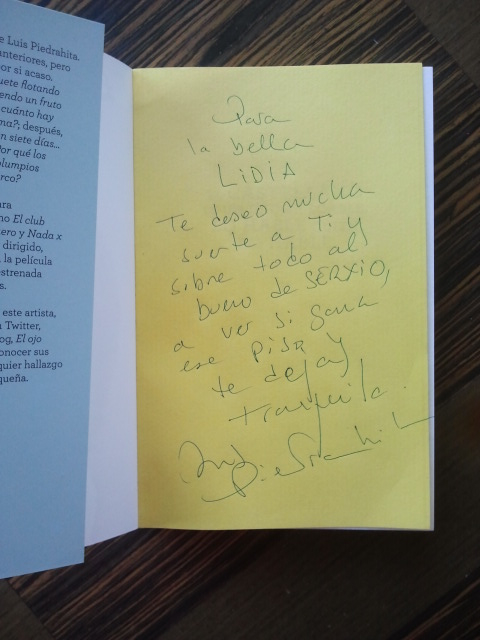 e Luis Piedrahita.
anteriores, pero
or si acaso.
uete flotando
endo un fruto
cuánto hay
ma?; después,
n siete días...
Por qué los
olumpios
arco?
ara
no El club
ero y Nada x
dirigido,
la película
estrenada
s.
este artista,
Twitter,
og, El ojo
onocer sus
quier hallazgo
queña.
Para
la bella
LIDIA
Te deseo mucha
suerte a Ti y
sobre todo al
bueno de SERXIO,
a ver si gana
ese PISA y
te deja
tranquila.
Luis
Piedrahita